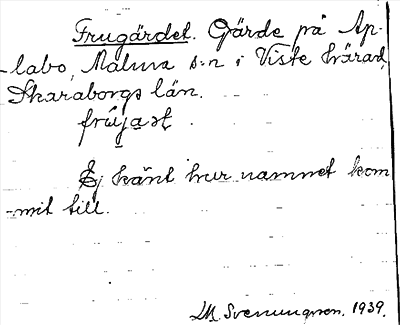 Frugärdet. Gärde på Ap-
labo, Malma s:n i Viste härad,
Skaraborgs län.
frújaṣt.
Ej känt hur namnet kom
-mit till.
Svenungson. 1939.